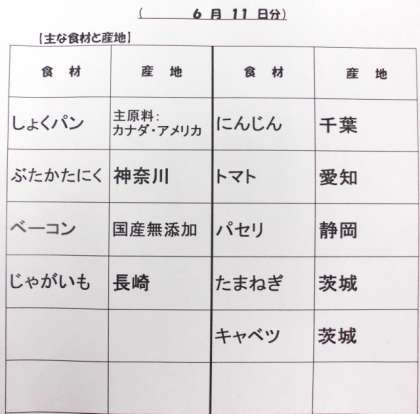 ( 6 月 11 日分)
【主な食材と産地】
食 材 産 地 食 材 産 地
しょくパン 主原料:
カナダ・アメリカ にんじん 千葉
ぶたかたにく 神奈川 トマト 愛知
ベーコン 国産無添加 パセリ 静岡
じゃがいも 長崎 たまねぎ 茨城
キャベツ 茨城